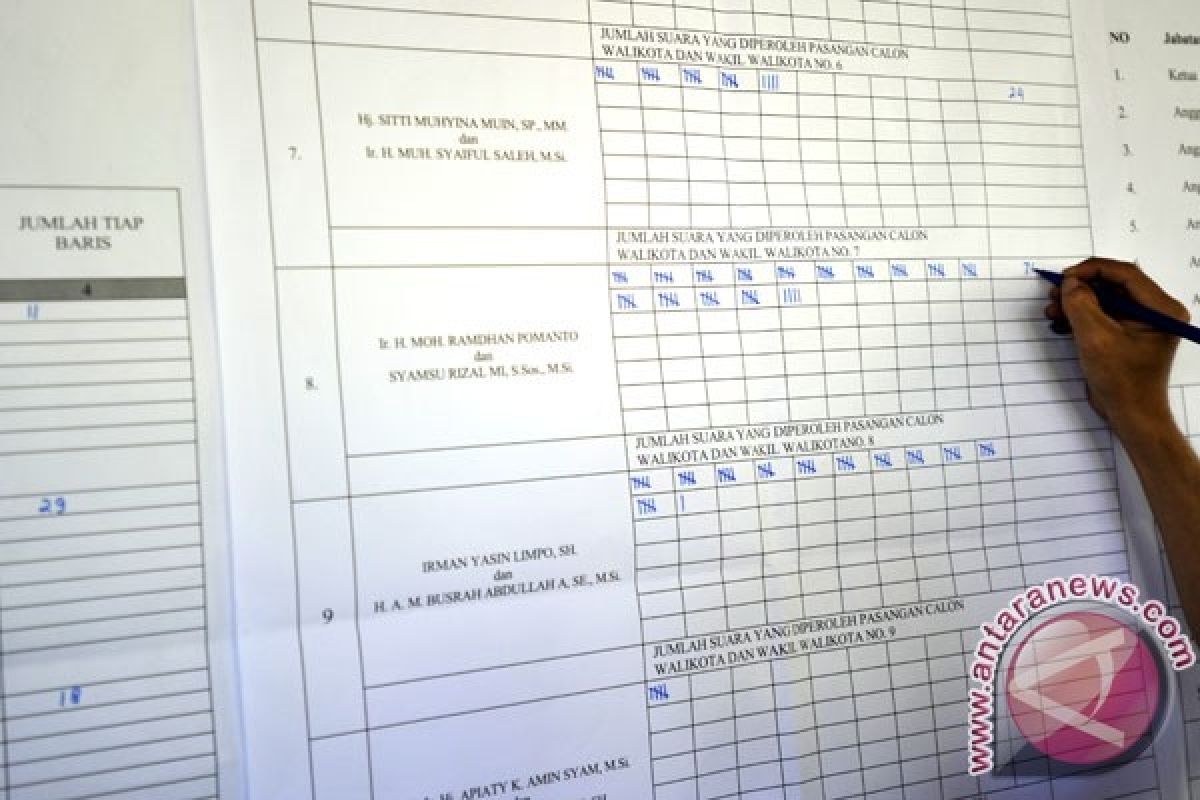 JUMLAH TIAP
BARIS
4
11
29
18
JUMLAH SUARA YANG DIPEROLEH PASANGAN CALON
WALIKOTA DAN WAKIL WALIKOTA NO. 6
24
7.
Hj. SITTI MUHYINA MUIN, SP., MM.
dan
Ir. H. MUH. SYAIFUL SALEH, M.Si.
JUMLAH SUARA YANG DIPEROLEH PASANGAN CALON
WALIKOTA DAN WAKIL WALIKOTA NO. 7
8.
Ir. H. MOH. RAMDHAN POMANTO
dan
SYAMSU RIZAL MI, S.Sos., M.Si.
JUMLAH SUARA YANG DIPEROLEH PASANGAN CALON
WALIKOTA DAN WAKIL WALIKOTANO. 8
9
IRMAN YASIN LIMPO, SH.
dan
H. A. M. BUSRAH ABDULLAH A, SE., M.Si.
JUMLAH SUARA YANG DIPEROLEH PASANGAN CALON
WALIKOTA DAN WAKIL WALIKOTA NO. 9
Hj. APIATY K. AMIN SYAM, M.Si.
NO
1. Ketua
2.
3.
4.
5.
www.antaranews.com